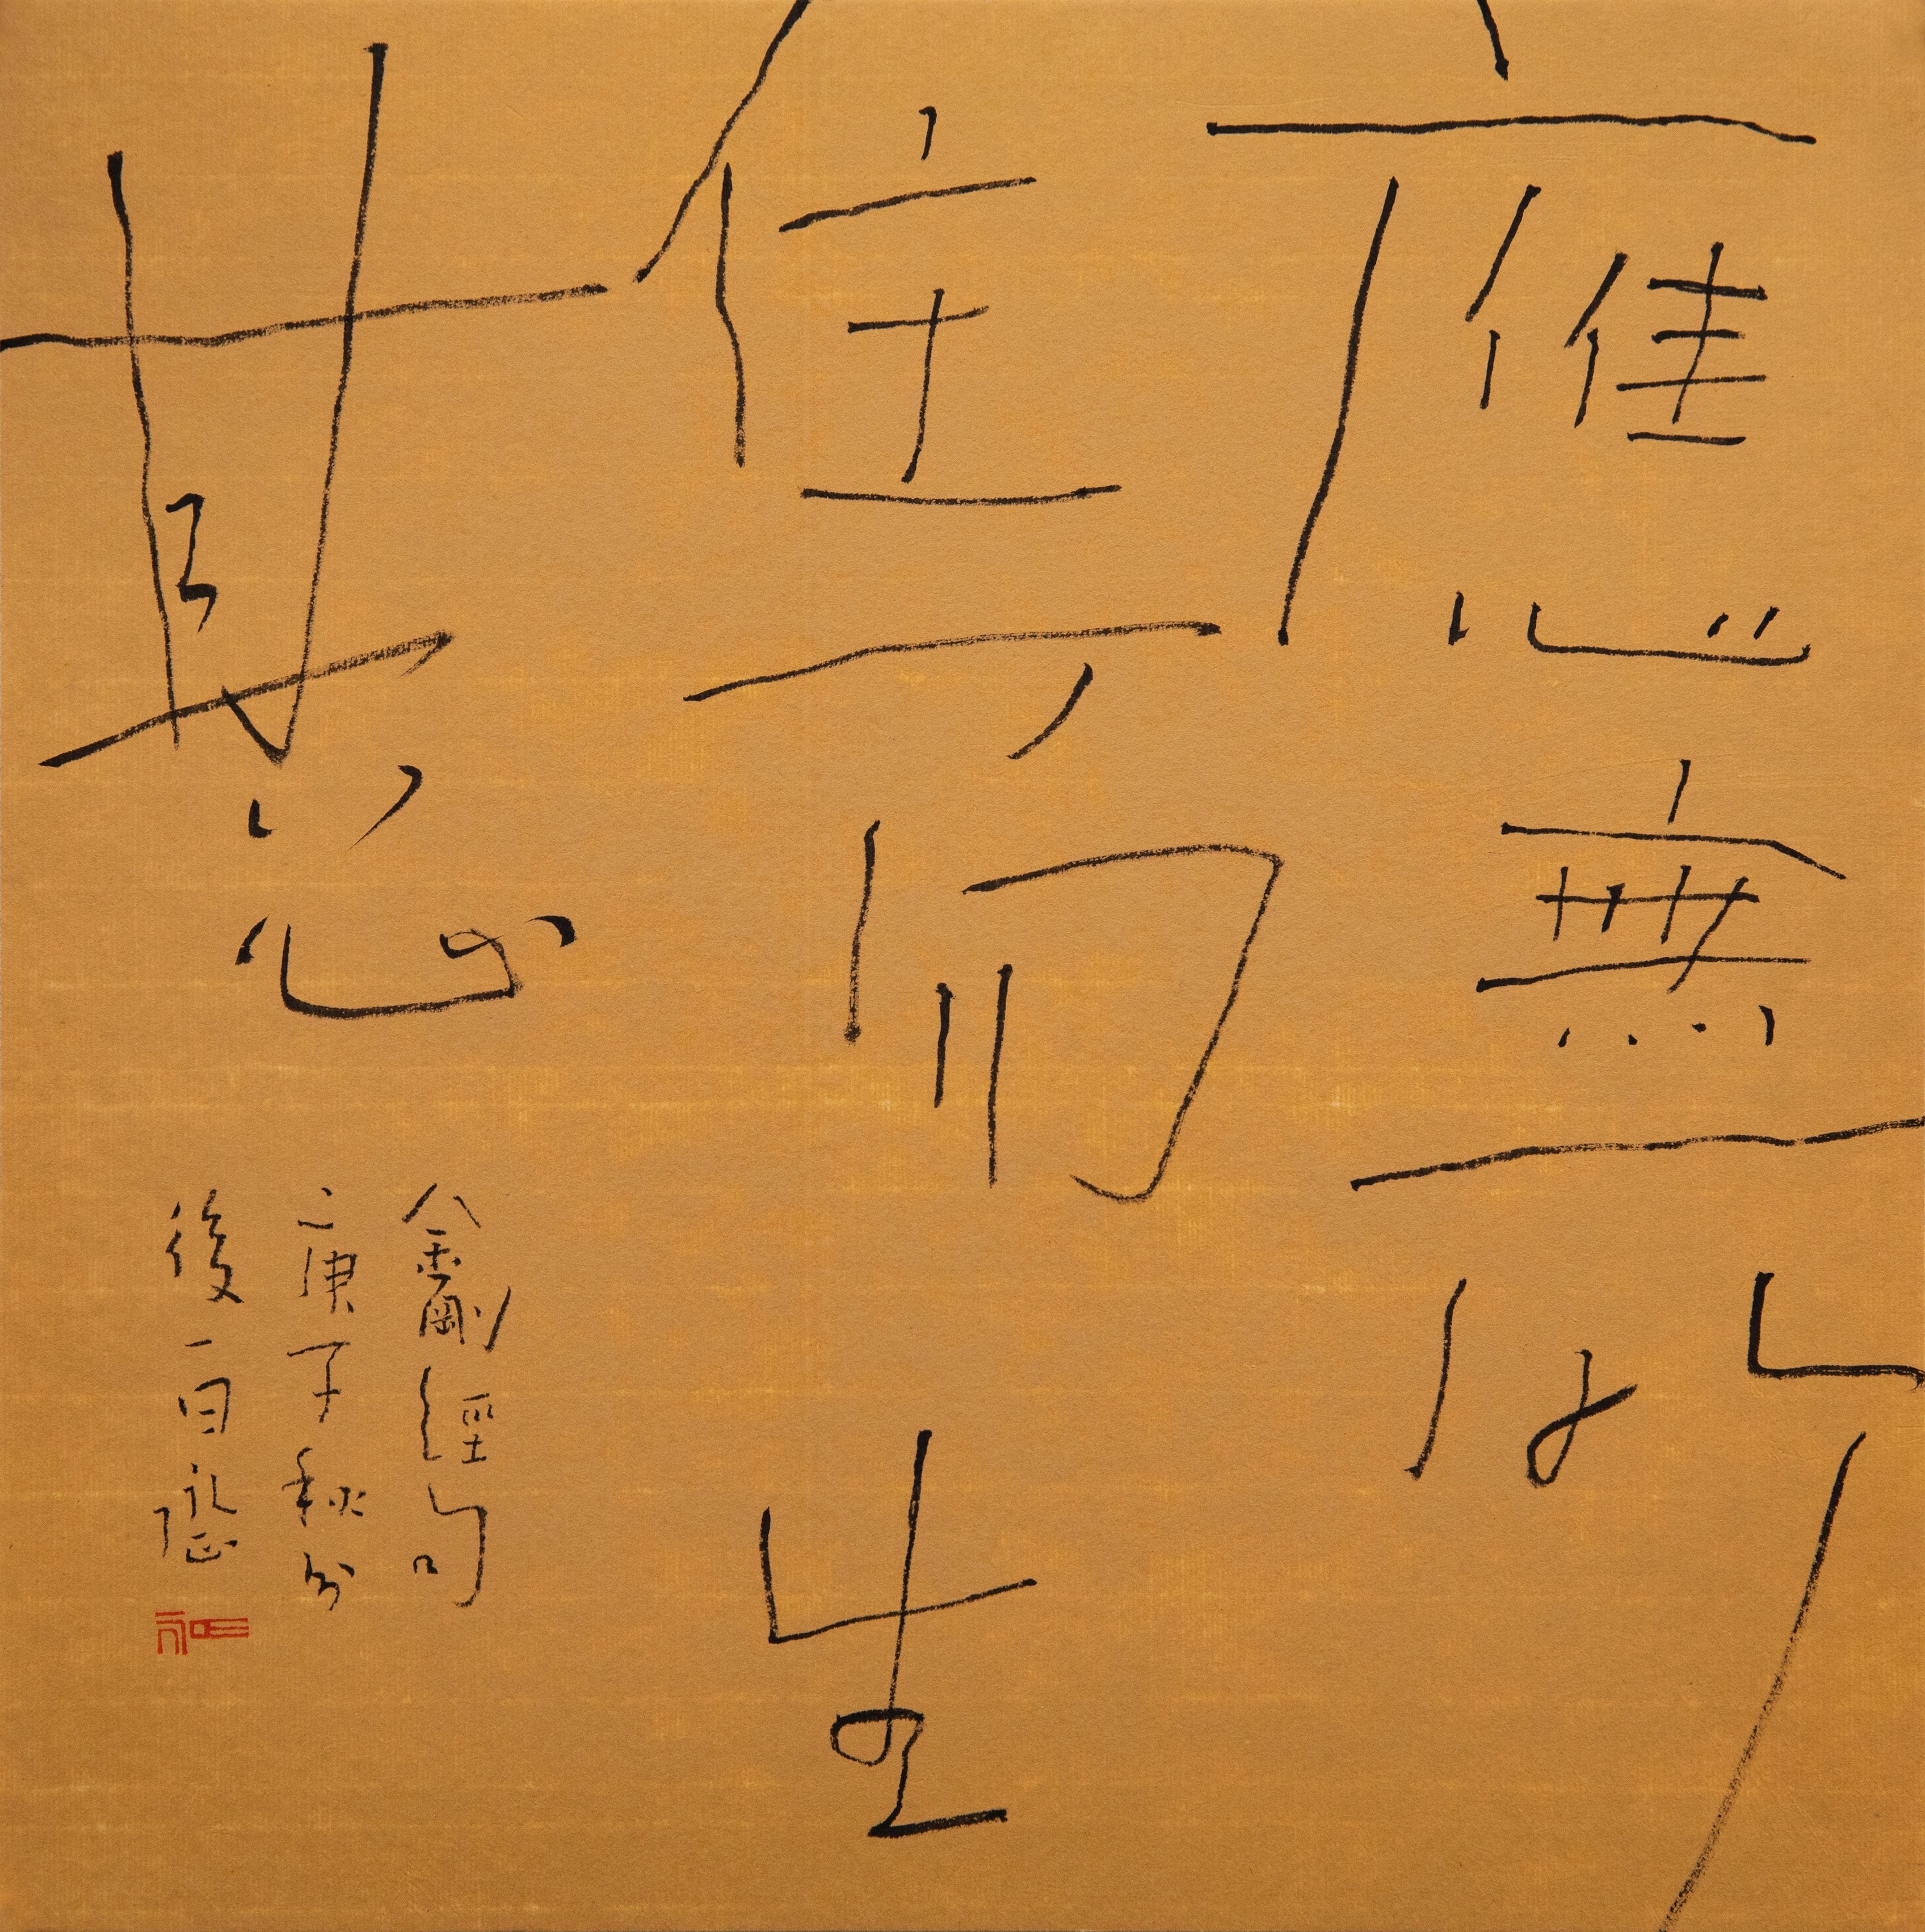 應無所
住而生
其心
金剛經句
庚子秋分
後一日